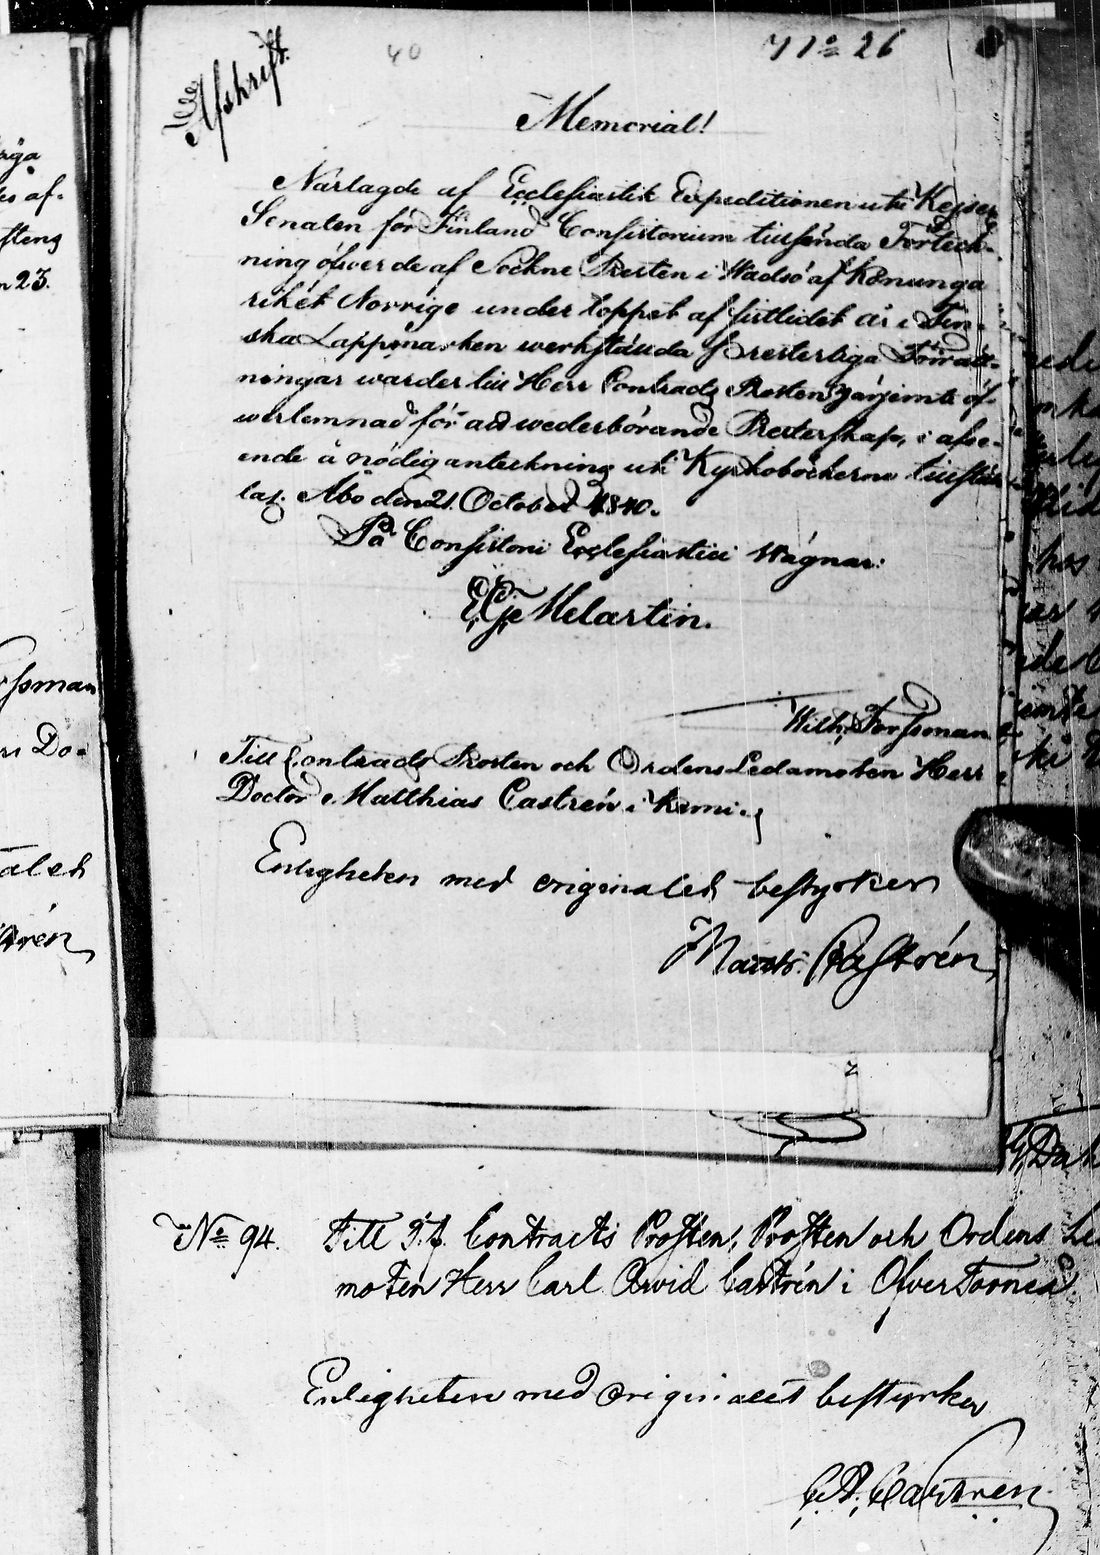 Afskrift.
40
No 26
Memorial!
Närlagde af Ecclesiastik Expeditionen uti Kejser
Senaten för Finland Consistorium tillsända Förteck-
ning öfwer de af Sockne Presten i Wadsö af Konunga
riket Norrige under loppet af sistlidet år i Fin-
ska Lappmarken werkstälda Presterliga Förrätt-
ningar warder till Herr Contracts Prosten härjemte öf-
werlemnad för att wederbörande Presterskap, i afse-
ende å nödig anteckning uti Kyrkoböckerne tillstäl-
las. Åbo den 21. October 1840.
På Consistorii Ecclesiastici Wägnar:
E. G. Melartin.
Wilh. Forssman
Till Contracts Prosten och Ordens Ledamoten Herr
Doctor Matthias Castrén i Kemi.
Enligheten med originalet bestyrker
Matts. Castrén
No 94. Till T.f. Contracts Prosten, Prosten och Ordens Le
moten Herr Carl Arvid Castrén i Öfver Torneå.
Enligheten med originalet bestyrker
C. A. Castrén
äga
es af-
n 23.
rssman
Do-
alet
trén
hos